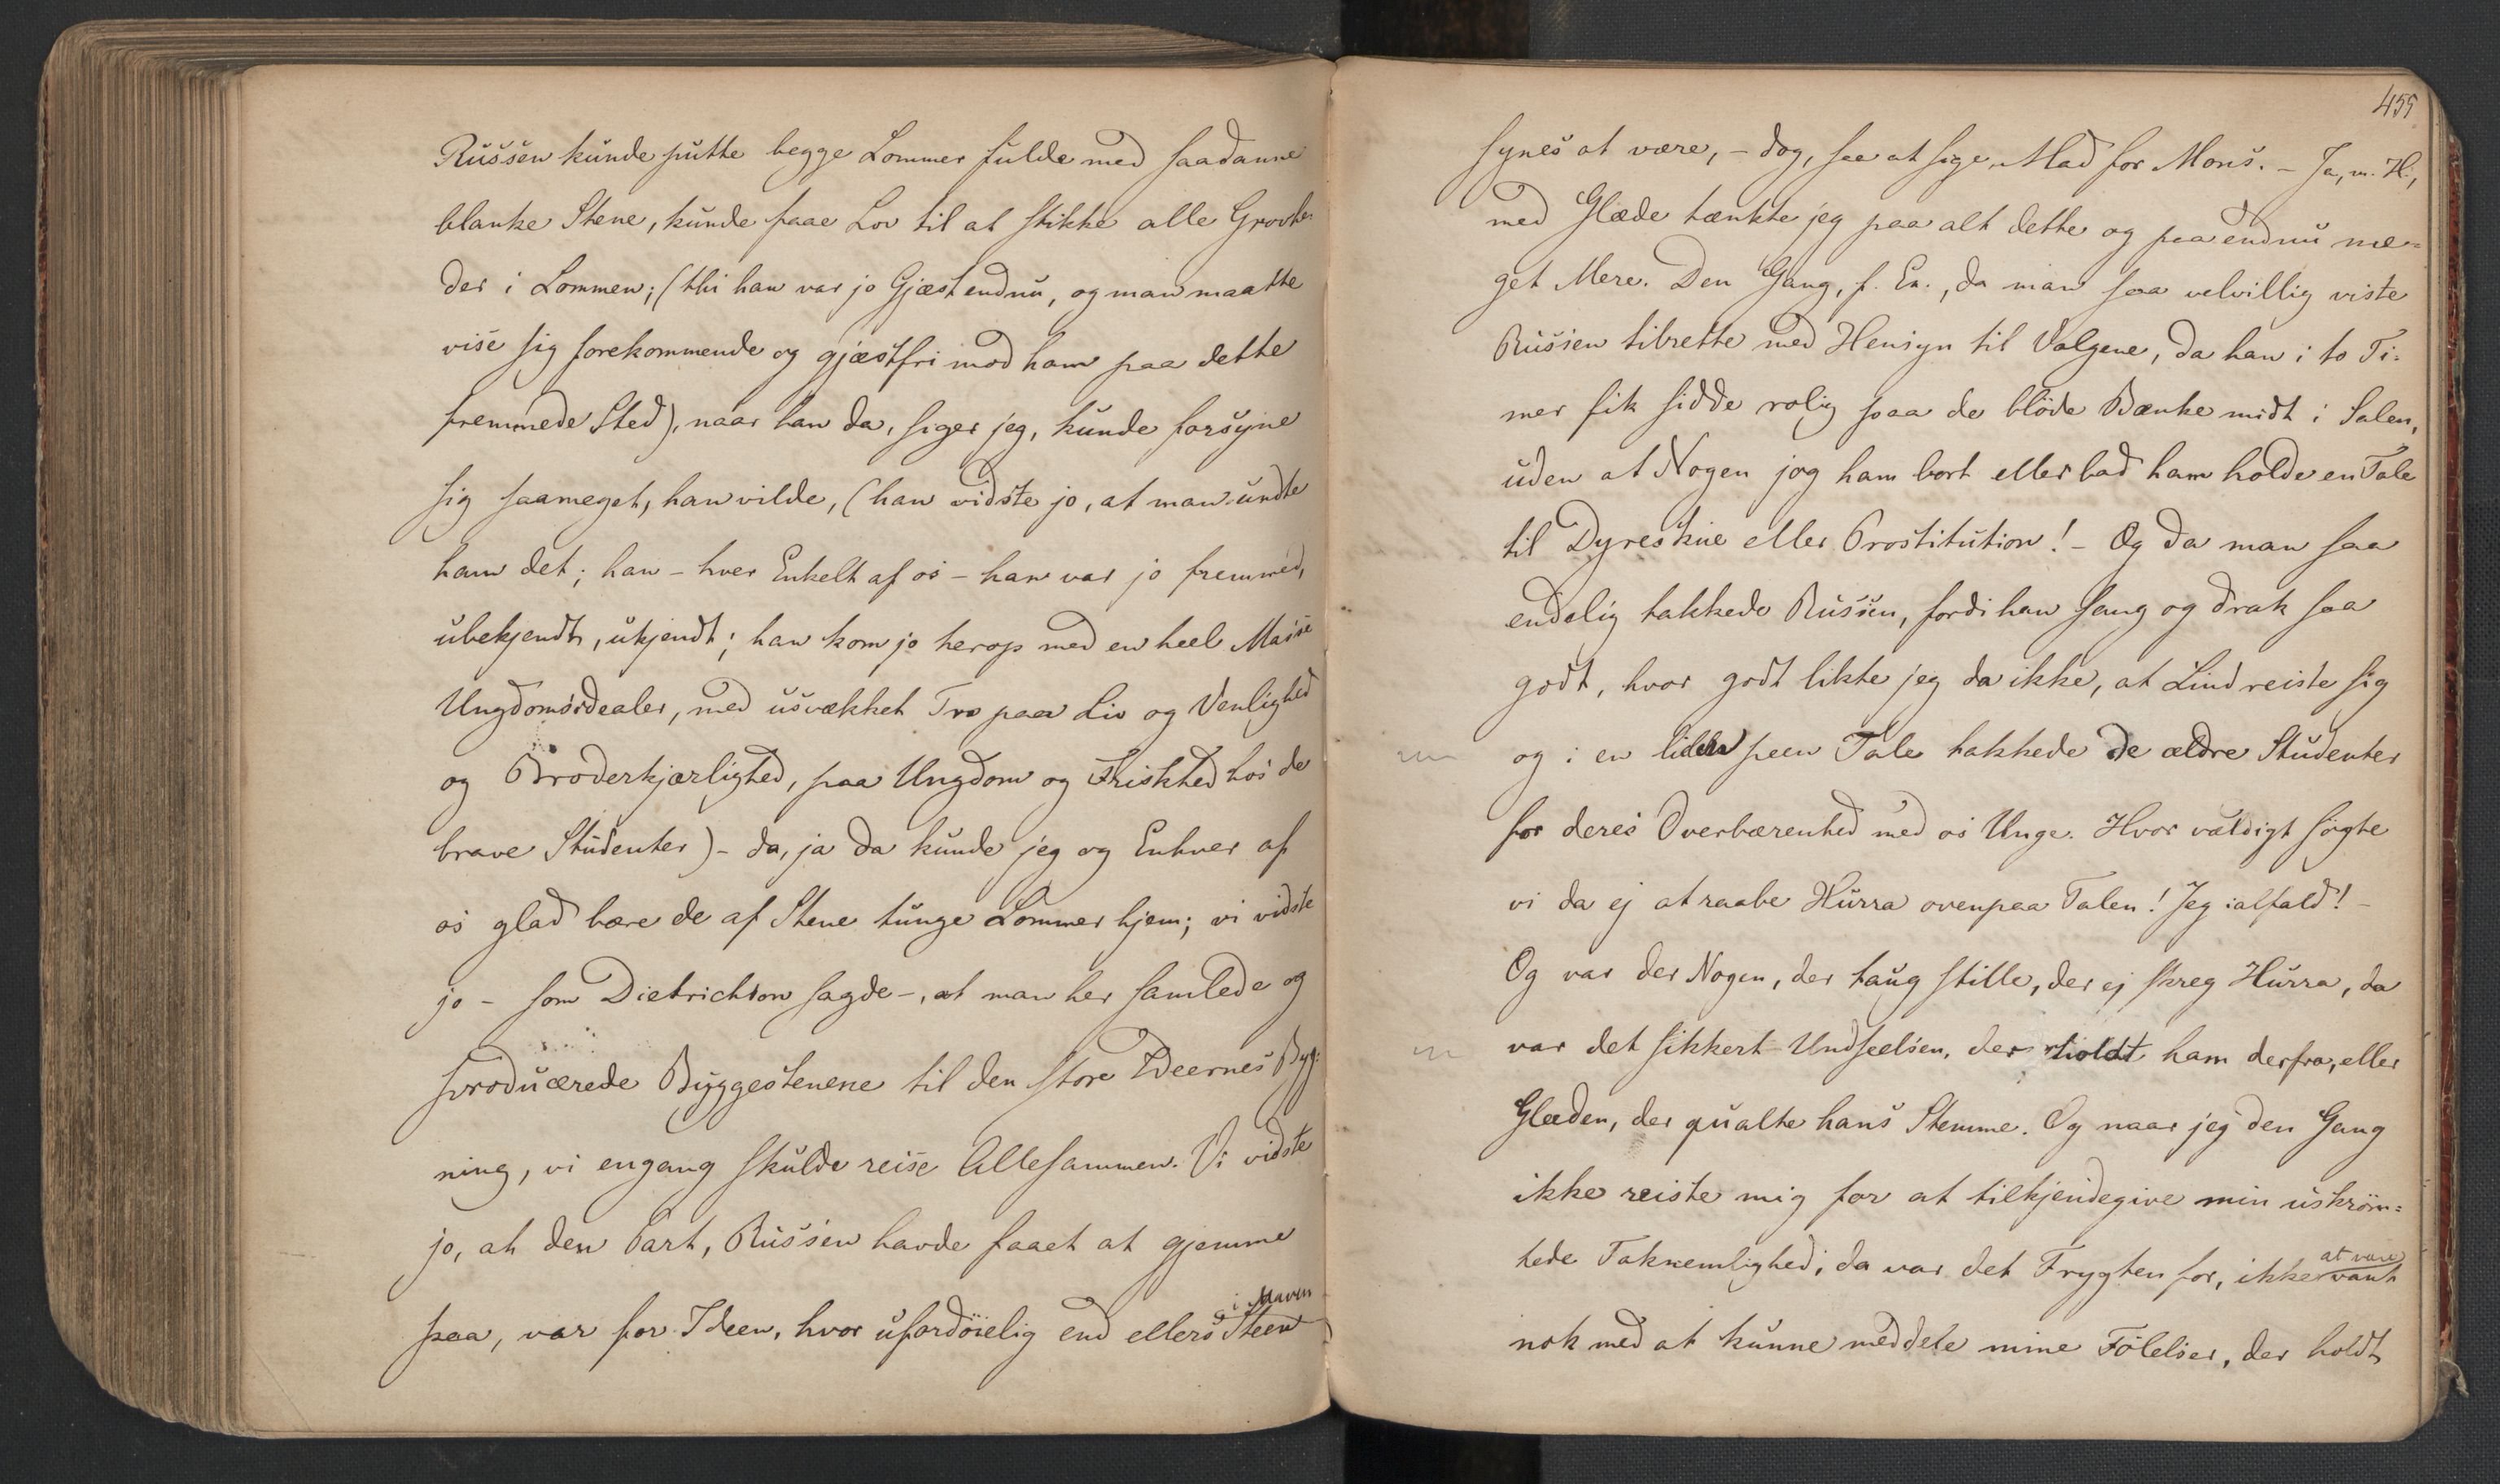 Russen kunde putte begge Lommer fulde med saadanne
blanke Stene, kunde faae Lov til at stikke alle Grovhe-
der i Lommen; (thi han var jo Gjæst endnu, og man maatte
vise sig forekommende og gjæstfri mod ham paa dette
fremmede Sted), naar han da, siger jeg, kunde forsyne
sig saameget, han vilde, (han vidste jo, at man undte
ham det; han – hver Enkelt af os – han var jo fremmed,
ubekjendt, ukjendt; han kom jo herop med en heel Masse
Ungdomsidealer, med usvækket Tro paa Liv og Venlighed
og Broderkjærlighed, paa Ungdom og Friskhed hos de
brave Studenter) – da, ja da kunde jeg og Enhver af
os glad bære de af Stene tunge Lommer hjem; vi vidste
jo – som Dietrichson sagde –, at man her samlede og
producerede Byggestenene til den store Ideernes Byg-
ning, vi engang skulde reise Allesammen. Vi vidste
jo, at den Part, Russen havde faaet at gjemme
paa, var for Ideen, hvor ufordöielig end ellers Steen
i Maven
455
synes at være, – dog, saa at sige, Mad for Mons. – Ja, m. H.,
med Glæde tænkte jeg paa alt dette og paa endnu me-
get Mere. Den Gang, f. Ex., da man saa velvillig viste
Russen tilrette med Hensyn til Valgene, da han i to Ti-
mer fik sidde rolig paa de blöde Bænke midt i Salen,
uden at Nogen jog ham bort eller bad ham holde en Tale
til Dyreskue eller Prostitution! – Og da man saa
endelig takkede Russen, fordi han sang og drak saa
godt, hvor godt likte jeg da ikke, at Lind reiste sig
og i en liden peen Tale takkede de ældre Studenter
for deres Overbærenhed med os Unge. Hvor vældigt sögte
vi da ej at raabe Hurra ovenpaa Talen! Jeg ialfald! –
Og var der Nogen, der taug stille, der ej skreg Hurra, da
var det sikkert Undseelsen, der holdt ham derfra, eller
Glæden, der qualte hans Stemme. Og naar jeg den Gang
ikke reiste mig for at tilkjendegive min uskröm-
tede Taknemlighed, da var det Frygten for, ikke at være vant
nok med at kunne meddele mine Fölelser, der holdt